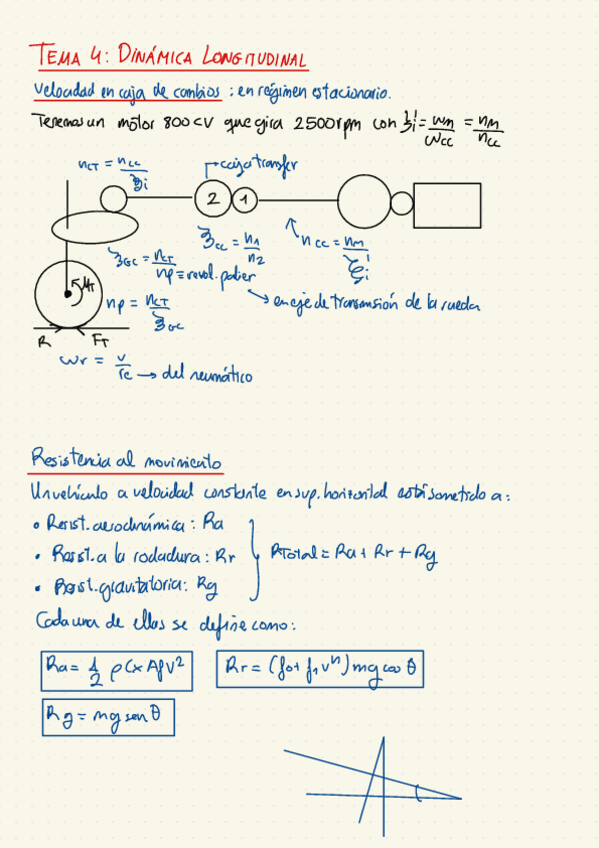 TEMA 4: DINÁMICA LONGITUDINAL
Velocidad en caja de cambios : en régimen estacionario.
Tenemos un motor 800 CV que gira 2500 rpm con ξi' = ωm/ωcc = nm/ncc
nCT = ncc/ξi
caja transfer
2 1
ξcc = n1/n2
ncc = nm/ξi'
ξGC = nCT/np
np = revol. palier
en eje de transmisión de la rueda
MT
np = nCT/ξGC
R FT
ωr = v/rc → del neumático
Resistencia al movimiento
Un vehículo a velocidad constante en sup. horizontal está sometido a:
• Resist. aerodinámica: Ra
• Resist. a la rodadura: Rr
RTotal = Ra + Rr + Rg
• Resist. gravitatoria: Rg
Cada una de ellas se define como:
Ra = 1/2 ρ Cx Af v²
Rr = (f0 + f1 vⁿ) mg cos θ
Rg = mg sen θ